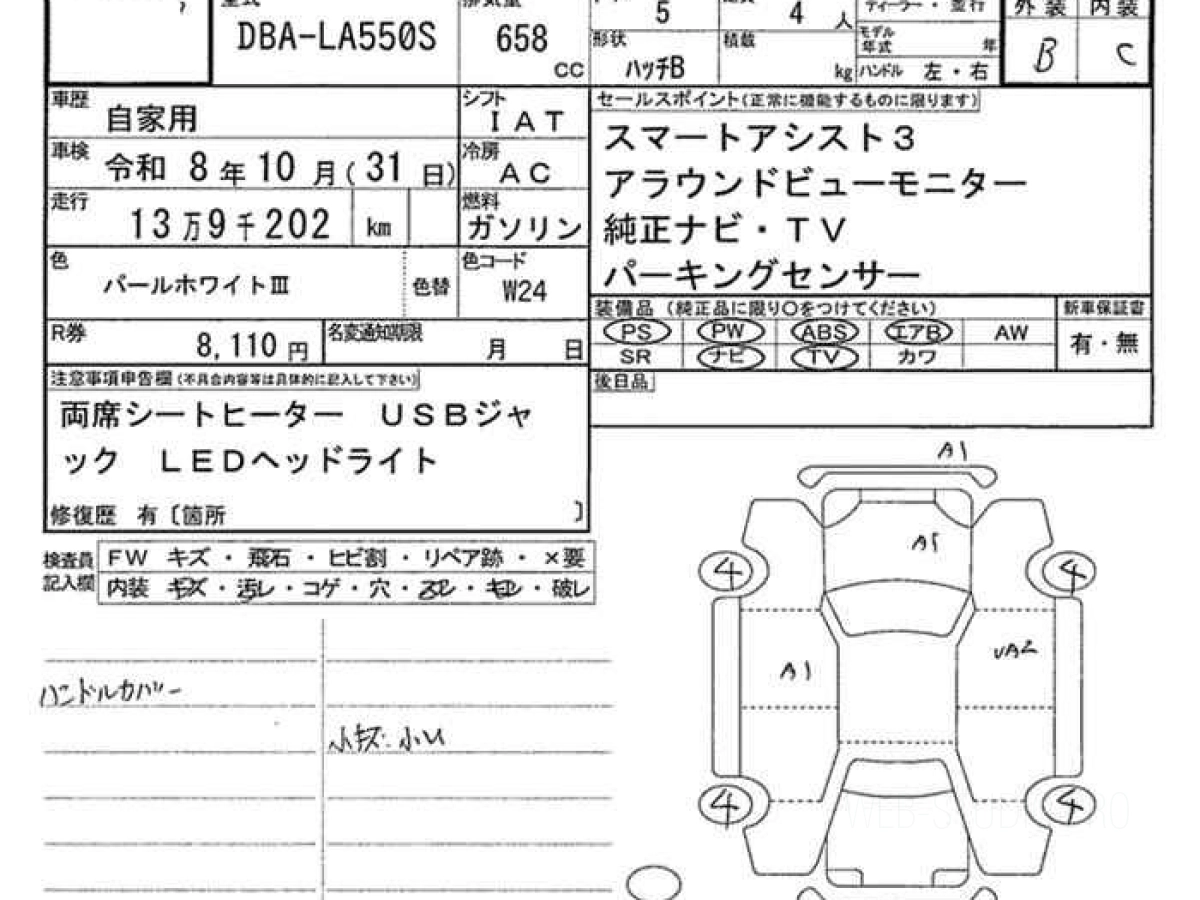 型式 排気量 5 4 人 ディーラー・並行 外装 内装
DBA-LA550S 658 cc 形状 ハッチB 積載 kg モデル年式 年 B C
ハンドル 左・右
車歴 自家用 シフト IAT セールスポイント(正常に機能するものに限ります)
スマートアシスト3
車検 令和 8年10月(31日) 冷房 AC
アラウンドビューモニター
走行 13万9千202 km 燃料 ガソリン 純正ナビ・TV
色 パールホワイトⅢ 色替 色コード W24 パーキングセンサー
装備品 (純正品に限り○をつけてください) 新車保証書
PS PW ABS エアB AW 有・無
R券 8,110 円 名変通知期限 月 日
SR ナビ TV カワ
注意事項申告欄(不具合内容等は具体的に記入して下さい) 後日品
両席シートヒーター USBジャ
ック LEDヘッドライト
修復歴 有〔箇所 〕
検査員記入欄 FW キズ・飛石・ヒビ割・リペア跡・×要
内装 キズ・汚レ・コゲ・穴・スレ・キレ・破レ
A1
A1
4 4
UA2
A1
ハンドルカバー
小キズ.小凹
4 4